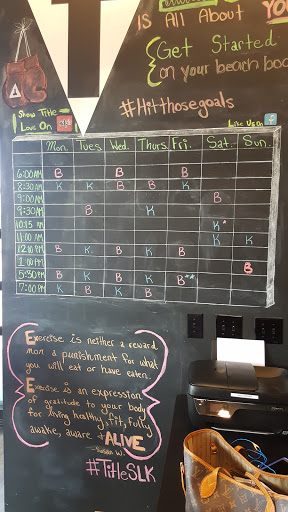 is All About YO
Get Started
on your beach bod
#Hitthosegoals
Show Title
Love On
Like Us On
Mon. Tues Wed. Thurs. Fri. Sat. Sun.
6:00AM B B B
8:30AM K K B B K
9:00AM B
9:30AM B K
10:15 AM K*
11:00 AM K K
12:10PM B K B K B
2:00PM B
5:30PM B K B K B**
7:00PM K B K B
Exercise is neither a reward
nor a punishment for what
you will eat or have eaten.
Exercise is an expression
of gratitude to your body
for being healthy, fit, fully
awake, aware + ALIVE
-Susan W.
#TitleSLK